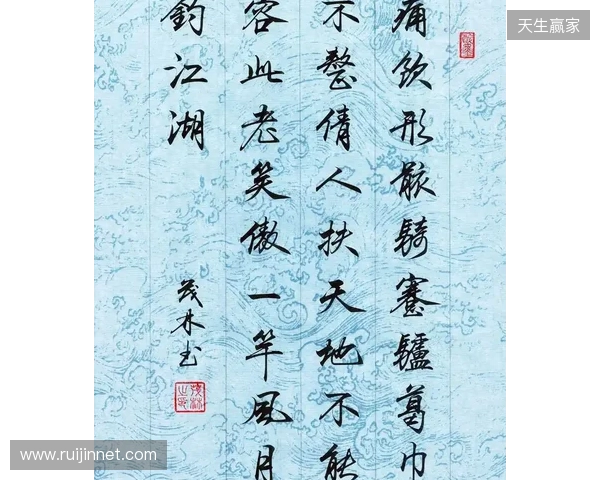 天生赢家
痛飲形骸騎蹇驢葛巾
不整倩人扶天地不能
容此老笑傲一竿風月
釣江湖
茂林书
www.ruijinnet.com